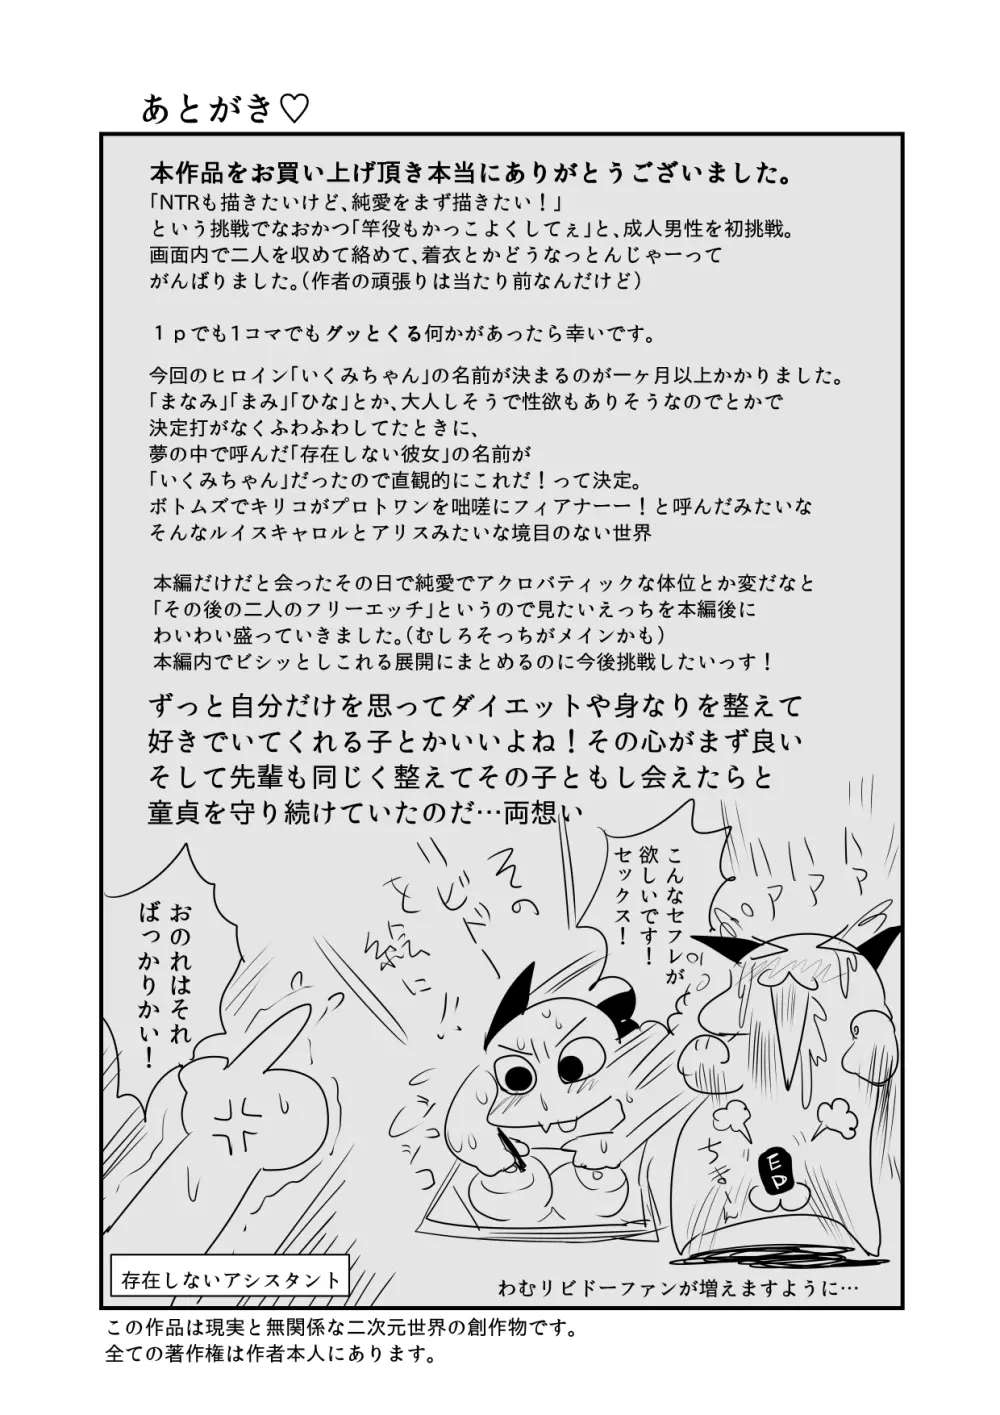 あとがき♡
本作品をお買い上げ頂き本当にありがとうございました。
「NTRも描きたいけど、純愛をまず描きたい！」
という挑戦でなおかつ「竿役もかっこよくしてぇ」と、成人男性を初挑戦。
画面内で二人を収めて絡めて、着衣とかどうなっとんじゃーって
がんばりました。（作者の頑張りは当たり前なんだけど）
１ｐでも1コマでもグッとくる何かがあったら幸いです。
今回のヒロイン「いくみちゃん」の名前が決まるのが一ヶ月以上かかりました。
「まなみ」「まみ」「ひな」とか、大人しそうで性欲もありそうなのでとかで
決定打がなくふわふわしてたときに、
夢の中で呼んだ「存在しない彼女」の名前が
「いくみちゃん」だったので直観的にこれだ！って決定。
ボトムズでキリコがプロトワンを咄嗟にフィアナーー！と呼んだみたいな
そんなルイスキャロルとアリスみたいな境目のない世界
本編だけだと会ったその日で純愛でアクロバティックな体位とか変だなと
「その後の二人のフリーエッチ」というので見たいえっちを本編後に
わいわい盛っていきました。（むしろそっちがメインかも）
本編内でビシッとしこれる展開にまとめるのに今後挑戦したいっす！
ずっと自分だけを思ってダイエットや身なりを整えて
好きでいてくれる子とかいいよね！その心がまず良い
そして先輩も同じく整えてその子ともし会えたらと
童貞を守り続けていたのだ…両想い
こんなセフレが
欲しいです！
セックス！
その
リビドー
絵に！！
おのれはそれ
ばっかりかい！
シコ
ちきーん
EP
存在しないアシスタント
わむリビドーファンが増えますように…
この作品は現実と無関係な二次元世界の創作物です。
全ての著作権は作者本人にあります。